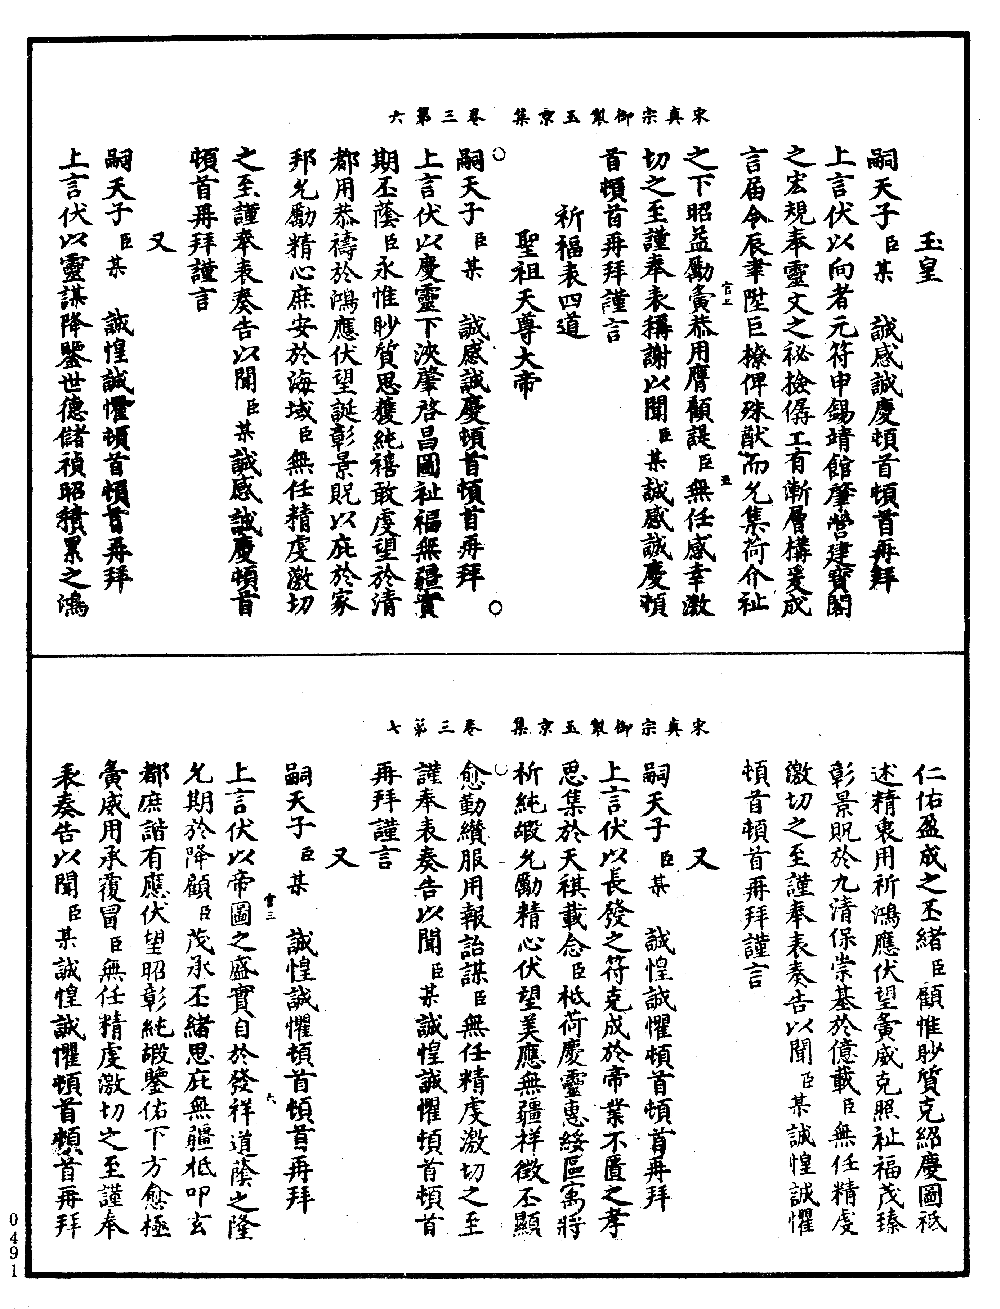 宋真宗御製玉京集　卷三第六
玉皇
嗣天子臣某　誠感誠慶頓首頓首再拜
上言伏以向者元符申錫靖館肇營建寶閣
之宏規奉靈文之祕撿僝工有漸層構爰成
言屆令辰聿陞巨㯝俾殊猷而允集荷介祉
之下昭益勵夤恭用膺顧諟臣無任感幸激
切之至謹奉表稱謝以聞臣某誠感誠慶頓
首頓首再拜謹言
祈福表四道
聖祖天尊大帝
嗣天子臣某　誠感誠慶頓首頓首再拜
上言伏以慶靈下浹肇啓昌圖祉福無疆實
期丕蔭臣永惟眇質思獲純禧敢虔望於清
都用恭禱於鴻應伏望誕彰景貺以庇於家
邦允勵精心庶安於海域臣無任精虔激切
之至謹奉表奏告以聞臣某誠感誠慶頓首
頓首再拜謹言
又
嗣天子臣某　誠惶誠懼頓首頓首再拜
上言伏以靈謀降鑒世德儲禎昭積累之鴻
宋真宗御製玉京集　卷三第七
仁佑盈成之丕緒臣顧惟眇質克紹慶圖祗
述精衷用祈鴻應伏望夤威克照祉福茂臻
彰景貺於九清保崇基於億載臣無任精虔
激切之至謹奉表奏告以聞臣某誠惶誠懼
頓首頓首再拜謹言
又
嗣天子臣某　誠惶誠懼頓首頓首再拜
上言伏以長發之符克成於帝業不匱之孝
思集於天祺載念臣祗荷慶靈惠綏區㝢將
祈純嘏允勵精心伏望美應無疆祥徵丕顯
愈勤纘服用報詒謀臣無任精虔激切之至
謹奉表奏告以聞臣某誠惶誠懼頓首頓首
再拜謹言
又
嗣天子臣某　誠惶誠懼頓首頓首再拜
上言伏以帝圖之盛實自於發祥道蔭之隆
允期於降顧臣茂承丕緒思庇無疆祗叩玄
都庶諧有應伏望昭彰純嘏鑒佑下方愈極
夤威用承覆冒臣無任精虔激切之至謹奉
表奏告以聞臣某誠惶誠懼頓首頓首再拜
0491